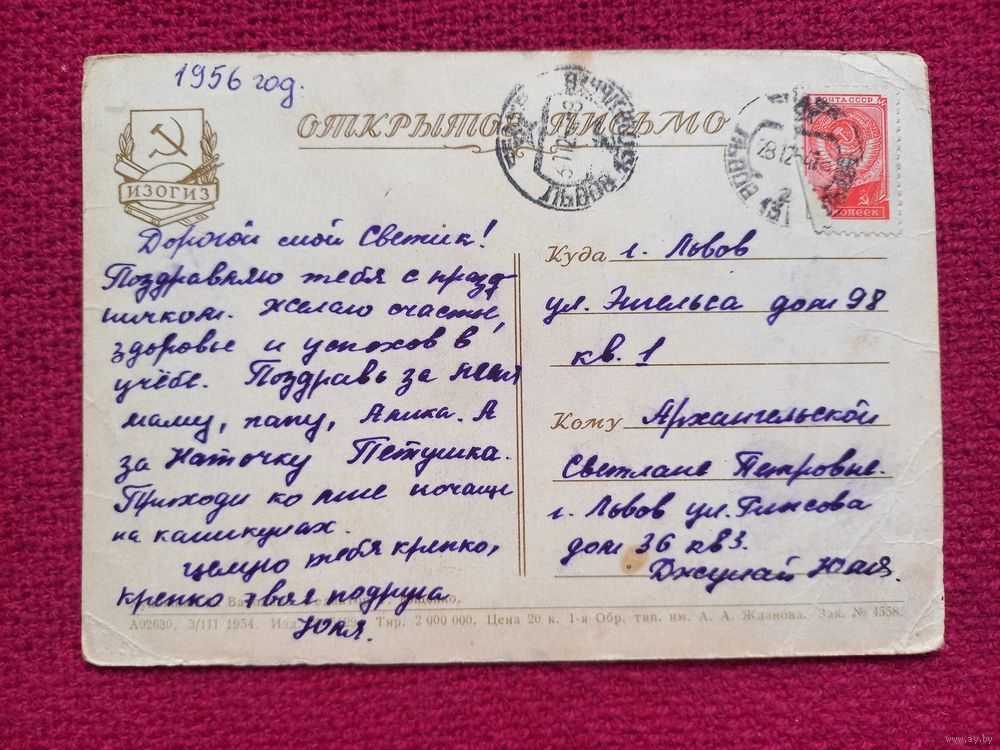 1956 год.
ОТКРЫТОЕ ПИСЬМО
ПОЧТА СССР
ИЗОГИЗ
Дорогой мой Светик!
Поздравляю тебя с празд
ничком. Желаю счастья,
здоровье и успехов в
учёбе. Поздравь за меня
маму, папу, Алика. А
за Наточку Петушка.
Приходи ко мне почаще
на каникулах.
Целую тебя крепко,
крепко твоя подруга
Юля.
Куда г. Львов
ул. Энгельса дом 98
кв. 1
Кому Архангельской
Светлане Петровне.
г. Львов ул.
дом 36 кв 3.
Джулай Юля.
А02630. 3/III 1954. Изд. Тир. 2 000 000. Цена 20 к. 1-я Обр. тип. им. А. А. Жданова. Зак. № 4558.
ЛЬВОВ
28 12
www.ay.by